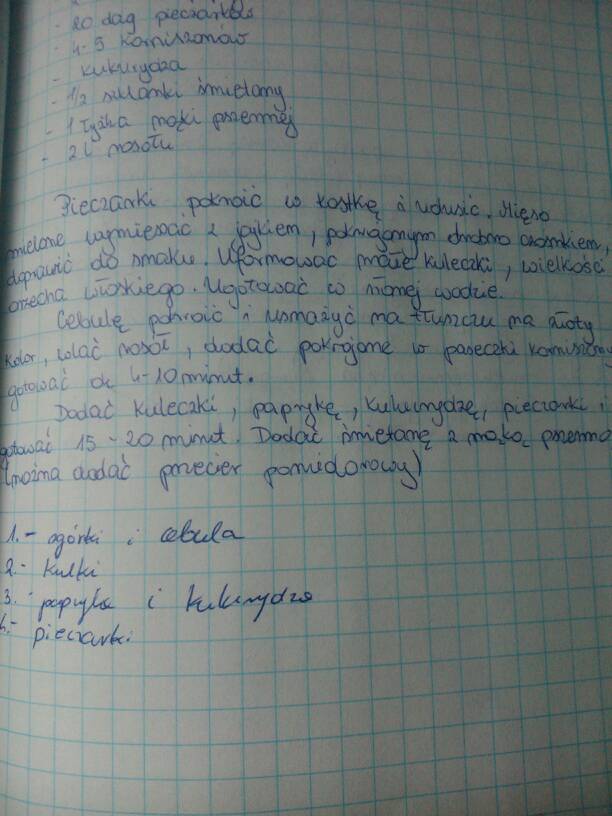 - 20 dag pieczarków
- 4-5 korniszonów
- kukurydza
- 1/2 szklanki śmietany
- 1 łyżka mąki pszennej
- 2 l rosołu
Pieczarki pokroić w kostkę i udusić. Mięso
mielone wymieszać z jajkiem, pokrojonym drobno czosnkiem,
doprawić do smaku. Uformować małe kuleczki, wielkości
orzecha włoskiego. Ugotować w słonej wodzie.
Cebulę pokroić i usmażyć na tłuszczu na złoty
kolor, wlać rosół, dodać pokrojone w paseczki korniszony
gotować ok 4-10 minut.
Dodać kuleczki, paprykę, kukurydzę, pieczarki i
gotować 15-20 minut. Dodać śmietanę z mąką pszenną
(można dodać przecier pomidorowy)
1.- ogórki i cebula
2.- kulki
3.- papryka i kukurydza
4.- pieczarki